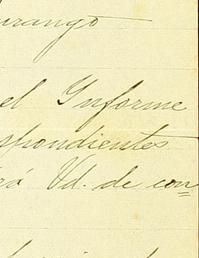 urango
el Informe
spondientes
rá Vd. de con=